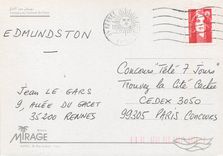 EDMUNDSTON
Concours "Télé 7 Jours"
Trouvez la Cité Cachée
CEDEX 3050
99305 PARIS CONCOURS
Jean LE GARS
9, ALLÉE DU GACET
35200 RENNES
MIRAGE